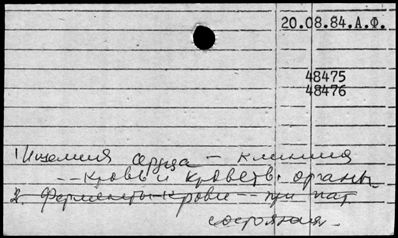 20.08.84.А.Ф.
48475
48476
1 Ишемия сердца – клиника
-- кровь и кроветв. органы
2. Ферменты крови -- при пат
состояния